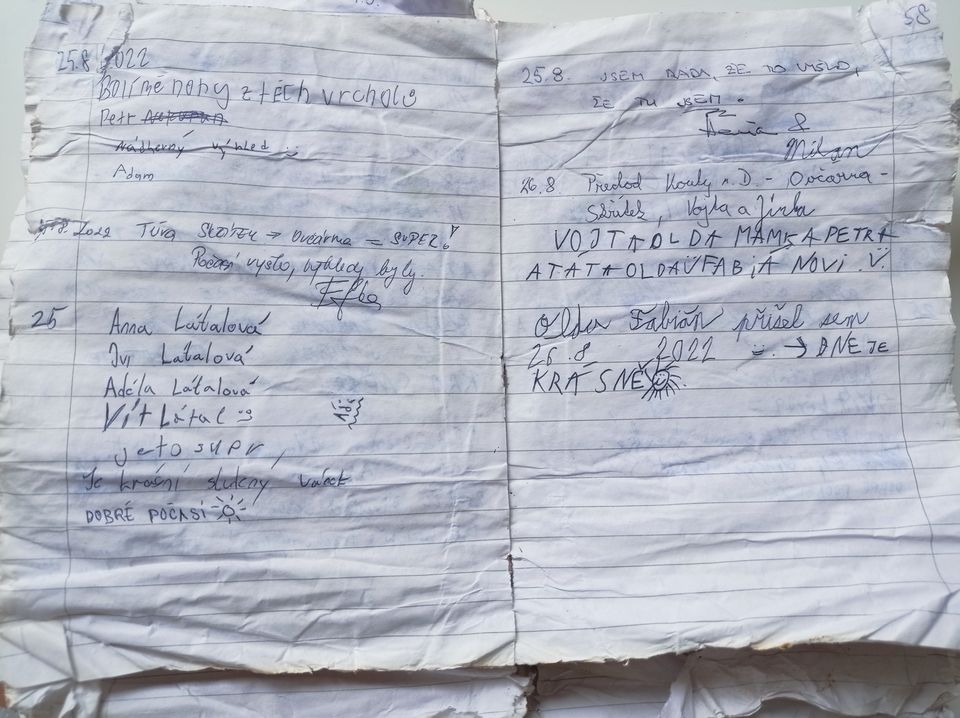 25.8 2022
Bolí mě nohy z těch vrcholů
Petr
Nádherný výhled
Adam
8. 2022 Túra SKŘÍTEK → OVČÁRNA = SUPER!
Počasí vyšlo, výhledy byly.
25
Anna Látalová
Ivi Látalová
Adéla Látalová
Vít Látal
je to supr,
Je krásní slutečný
DOBRÉ POČASÍ
58
25.8. JSEM RADA, ŽE TO VYŠLO,
ŽE TU JSEM.
&
Milan
26.8 Přechod Kouty n. D. - Ovčárna -
Skřítek, Vojta a Jirka
VOJTA OLDA MAMKA PETRA
A TAŤA OLDA FABIÁNOVI.
Olda Fabián přišel sem
26.8 2022 → DNE JE
KRÁSNĚ